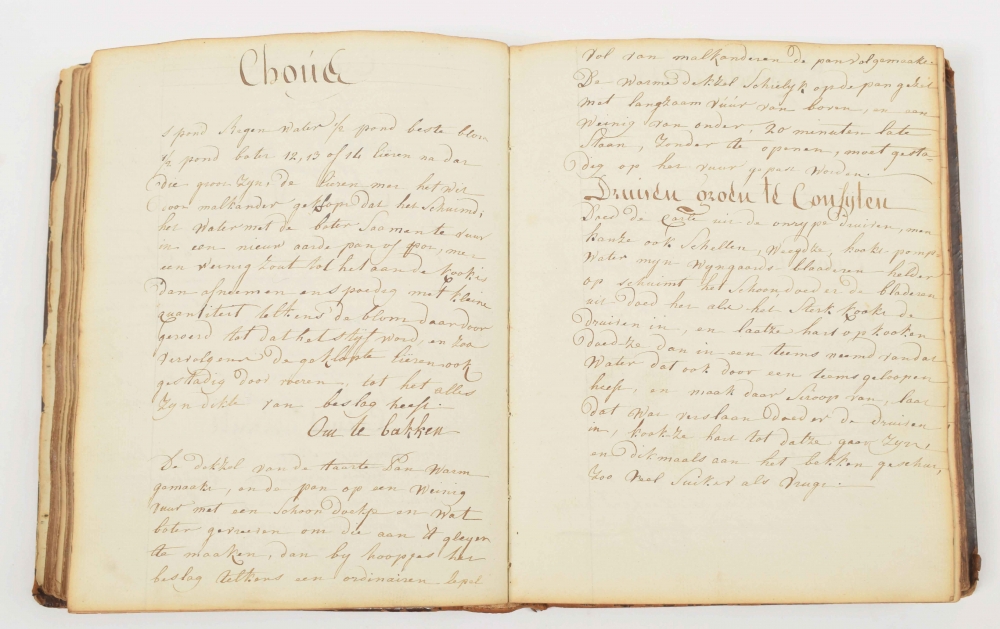 Chouä
s pond Regen Water ½ pond beste blom
½ pond boter 12, 13 of 14 Eieren na dat
die groot Zyn, de Eieren met het wit
door malkander geklopt dat het Schuimd,
het Water met de boter Saamen te vuur
in een nieuw aarde pan of pot, met
een weinig zout tot het aan de kook is
dan afneemen en spoedig met kleine
quantiteit telkens de blom daar door
geroerd tot dat het styf word, en zoo
vervolgens de geklopte Eieren ook
gestadig door roeren, tot het alles
Zyn dikte van beslag heeft.
Om te bakken
De dekkel van de Taarte Pan Warm
gemaakt, en de pan op een Weinig
vuur met een Schoon doekje en Wat
boter gevreven om die aan 't gleyen
te maaken, dan by hoopjes het
beslag telkens een ordinairen lepel
vol van malkanderen de pan vol gemaakt
De Warme dekkel Schielyk op de pan gezet
met langzaam vuur van boven, en een
Weinig van onder, 20 minuten late
Staan, Zonder te openen, moet gesta
dig op het vuur gepast Worden.
Druiven groen te Confyten
Doet de uit de onrype druiven, men
kanze ook Schellen, kookt pomp
Water myn Wyngaards blaaderen helder
op schuimt het Schoon, doed er de bladeren
uit Doed het als het Sterk kookt de
Druiven in, en laatze hart op kooken
doedze dan in een teems neemd van dat
Water dat ook door een teems geloopen
heeft, en maak daar Siroop van, laat
dat Wat verslaan doed er de Druiven
in, kookze hart tot datze gaar Zyn,
en dikmaals aan het bekken geschut,
Zoo veel Suiker als Vrugt.